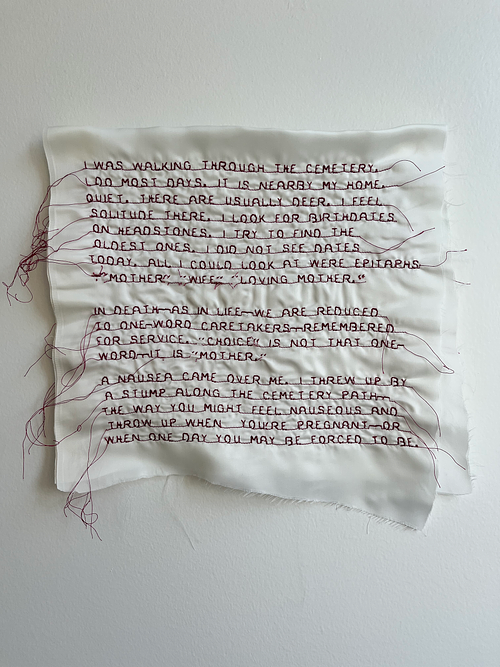 I WAS WALKING THROUGH THE CEMETERY.
I DO MOST DAYS. IT IS NEARBY MY HOME.
QUIET. THERE ARE USUALLY DEER. I FEEL
SOLITUDE THERE. I LOOK FOR BIRTHDATES
ON HEADSTONES. I TRY TO FIND THE
OLDEST ONES. I DID NOT SEE DATES
TODAY. ALL I COULD LOOK AT WERE EPITAPHS
"MOTHER" "WIFE" "LOVING MOTHER."

IN DEATH—AS IN LIFE—WE ARE REDUCED
TO ONE-WORD CARETAKERS—REMEMBERED
FOR SERVICE. "CHOICE" IS NOT THAT ONE-
WORD—IT IS "MOTHER."

A NAUSEA CAME OVER ME. I THREW UP BY
A STUMP ALONG THE CEMETERY PATH—
THE WAY YOU MIGHT FEEL NAUSEOUS AND
THROW UP WHEN YOU'RE PREGNANT—OR
WHEN ONE DAY YOU MAY BE FORCED TO BE.